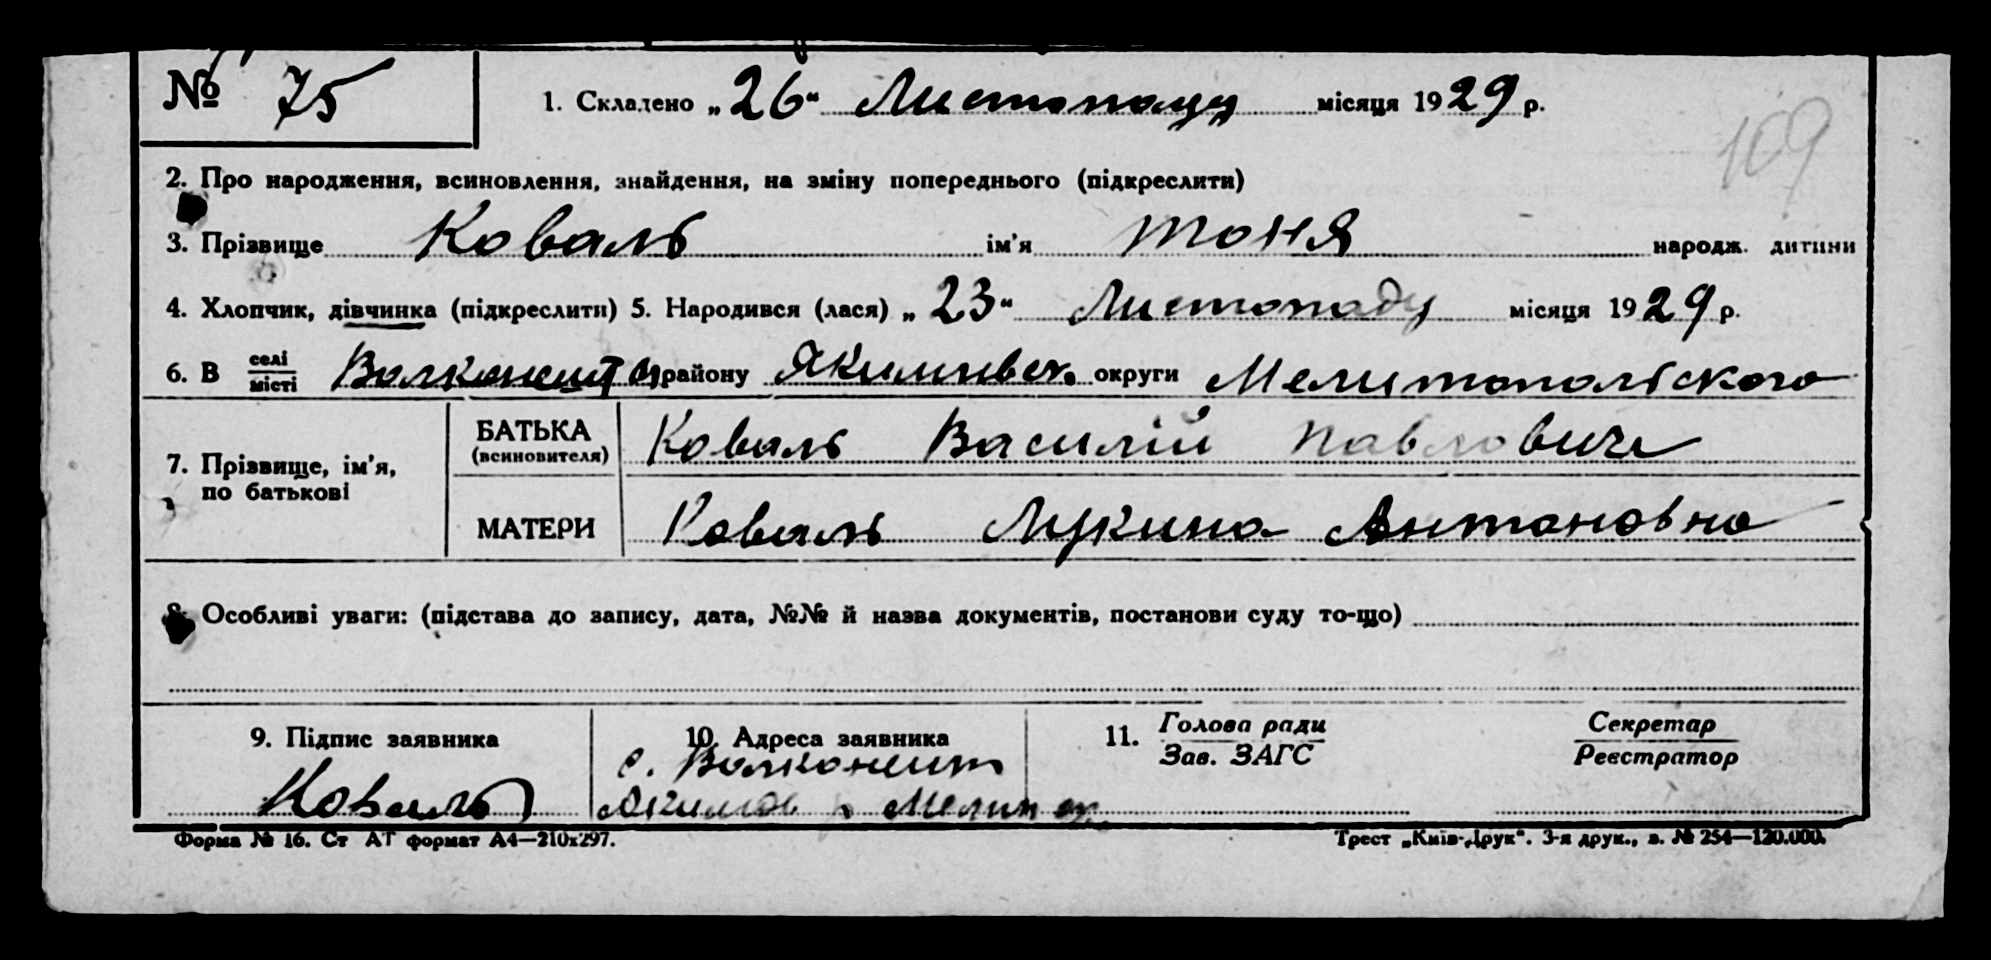 № 75
1. Складено „26“ Листопаду місяця 1929 р.
109
2. Про народження, всиновлення, знайдення, на зміну попереднього (підкреслити)
3. Прізвище Коваль ім'я Тоня народж. дитини
4. Хлопчик, дівчинка (підкреслити) 5. Народився (лася) „23“ Листопаду місяця 1929 р.
6. В селі/місті району округи Мелитопольского
7. Прізвище, ім'я, по батькові
БАТЬКА (всиновителя) Коваль Василій Павлович
МАТЕРИ Коваль Лукина Антоновна
8. Особливі уваги: (підстава до запису, дата, №№ й назва документів, постанови суду то-що)
9. Підпис заявника
Коваль
10. Адреса заявника
с.
11. Голова ради
Зав. ЗАГС
Секретар
Реєстратор
Форма № 16. Ст АТ формат А4—210х297.
Трест „Київ-Друк“. 3-я друк., з. № 254—120.000.